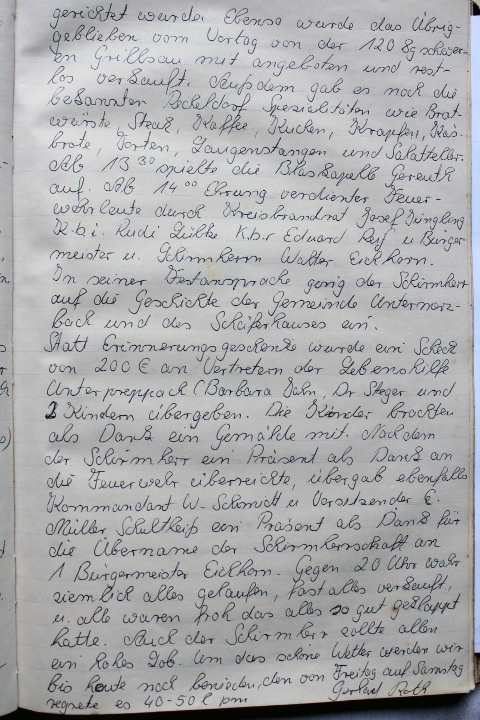 gerichtet wurde. Ebenso wurde das Übrig-
geblieben vom Vortag von der 120 kg schwer-
en Grillsau mit angeboten und rest-
los verkauft. Außdem gab es noch die
bekannten Reckeldorf Spezialitäten wie Brat-
würste, Steak, Kaffee, Kuchen, Krapfen, Käs-
brote, Torten, Laugenstangen und Salatteller.
Ab 13 30 spielte die Blaskapelle Gereuth
auf. Ab 14 00 Ehrung verdienter Feuer-
wehrleute durch Kreisbrandrat Josef Jüngling
K.b.i. Rudi Lülke K.b.r Eduard u Bürger
meister u. Schirmherrn Walter Eichhorn.
In seiner Festansprache gieng der Schirmherr
auf die Geschichte der Gemeinde Untermerz-
bach und des Schäferhauses ein.
Statt Erinnerungsgeschenke wurde ein Scheck
von 200 € an Vertretern der Lebenshilfe
Unterpreppach (Barbara Jahn, Dr Steger und
2 Kindern übergeben. Die Kinder brachten
als Dank ein Gemälde mit. Nachdem
der Schirmherr ein Präsent als Dank an
die Feuerwehr überreichte, übergab ebenfalls
Kommandant W. Schmidt u Vorsitzender E.
Müller Schultheiß ein Präsent als Dank für
die Übername der Schirmherrschaft an
1 Bürgermeister Eichhorn. Gegen 20 Uhr wahr
ziemlich alles gelaufen, fast alles verkauft,
u. alle waren froh das alles so gut geklappt
hatte. Auch der Schirmherr zollte allen
ein hohes Lob. Um das schöne Wetter werden wir
bis heute noch beniedен, den von Freitag auf Samstag
regnete es 40-50 l pm Gerhard Roth